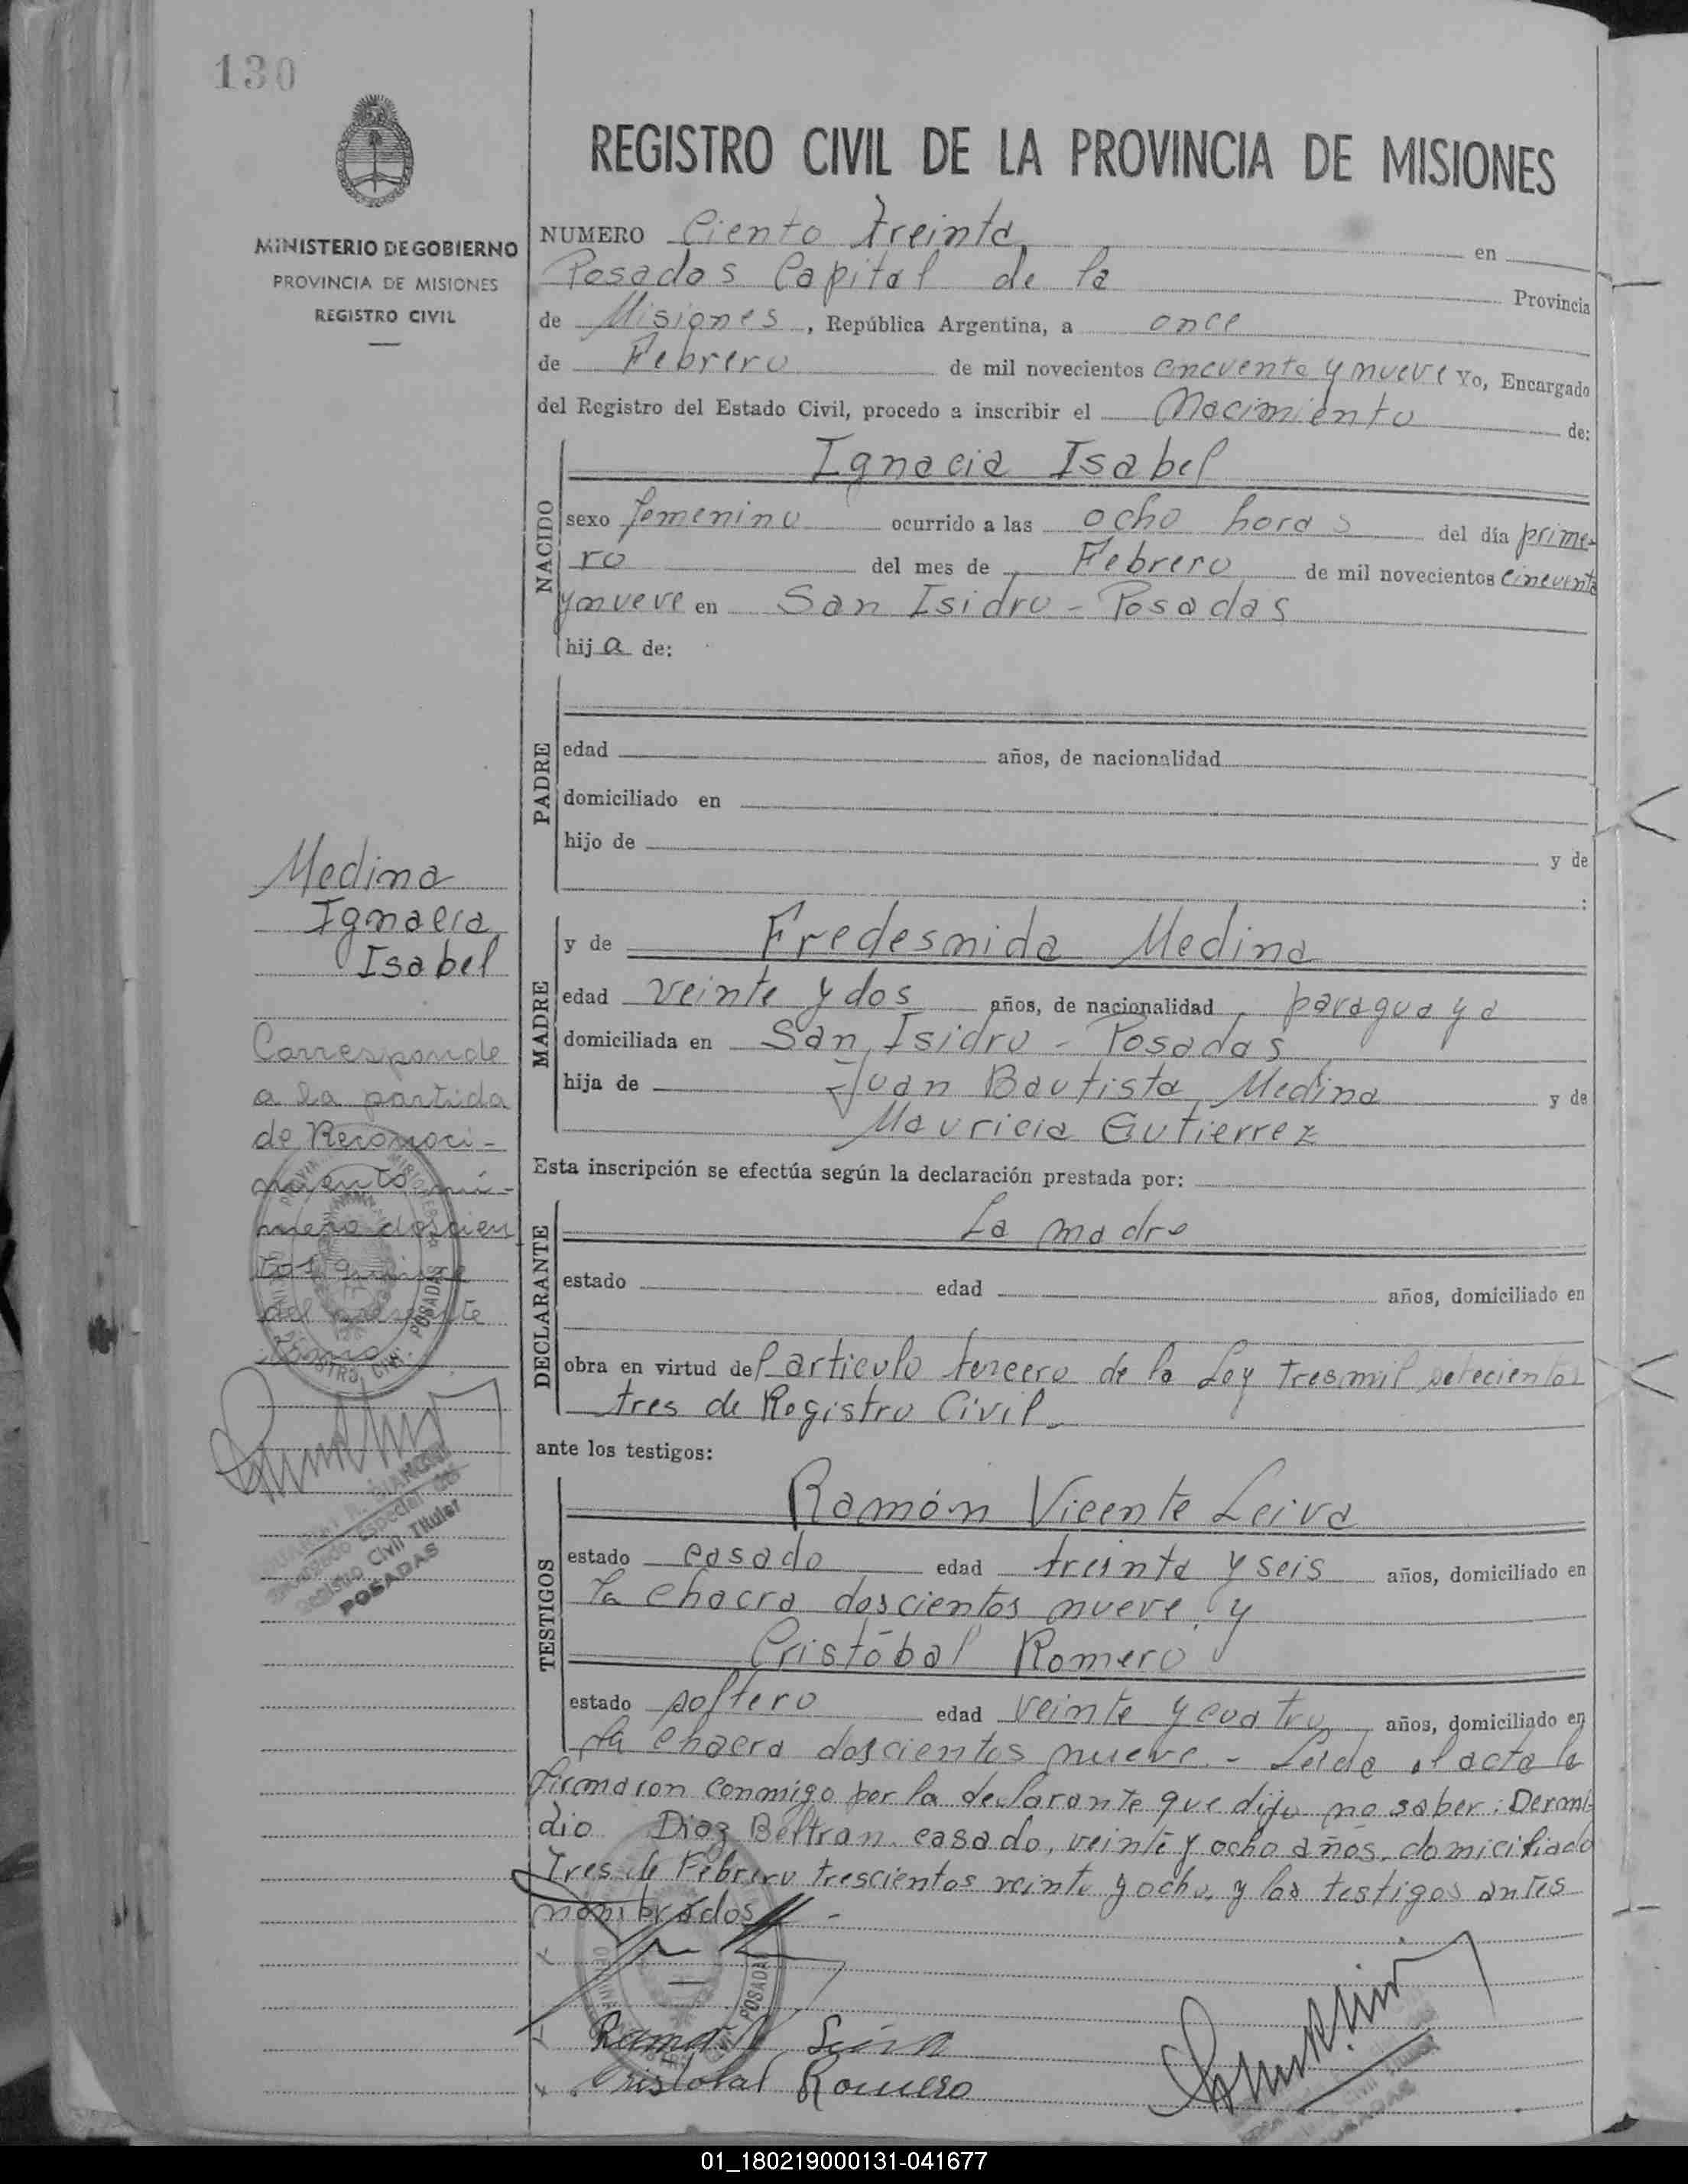 130
MINISTERIO DE GOBIERNO
PROVINCIA DE MISIONES
REGISTRO CIVIL
REGISTRO CIVIL DE LA PROVINCIA DE MISIONES
NUMERO Ciento treinta, en
Posadas Capital de la Provincia
de Misiones, República Argentina, a once
de Febrero de mil novecientos cincuenta y nueve Yo, Encargado
del Registro del Estado Civil, procedo a inscribir el Nacimiento de:
NACIDO
Ignacia Isabel
sexo femenino ocurrido a las ocho horas del día prime-
ro del mes de Febrero de mil novecientos cincuenta
y nueve en San Isidro - Posadas
hija de:
PADRE
edad años, de nacionalidad
domiciliado en
hijo de y de
:
Medina
Ignacia
Isabel
MADRE
y de Fredesmida Medina
edad veinte y dos años, de nacionalidad paraguaya
domiciliada en San Isidro - Posadas
hija de Juan Bautista Medina y de
Mauricia Gutierrez
Corresponde
a la partida
de Reconoci-
miento nú-
mero doscien
tos quince
del presente
tomo.
POSADAS
Registro Civil Titular
POSADAS
Esta inscripción se efectúa según la declaración prestada por:
DECLARANTE
La madre
estado edad años, domiciliado en
obra en virtud del articulo tercero de la Ley tresmil setecientos
tres de Registro Civil
ante los testigos:
TESTIGOS
Ramón Vicente Leiva
estado casado edad treinta y seis años, domiciliado en
la chacra doscientos nueve y
Cristóbal Romero
estado soltero edad veinte y cuatro años, domiciliado en
la chacra doscientos nueve.- Leida el acta la
firmaron conmigo por la declarante que dijo no saber: Dermi
dio Diaz Beltran, casado, veinte y ocho años, domiciliado
Tres de Febrero trescientos veinte y ocho, y los testigos antes
nombrados -
POSADAS
Ramón V. Leiva
Cristobal Romero
01_180219000131-041677